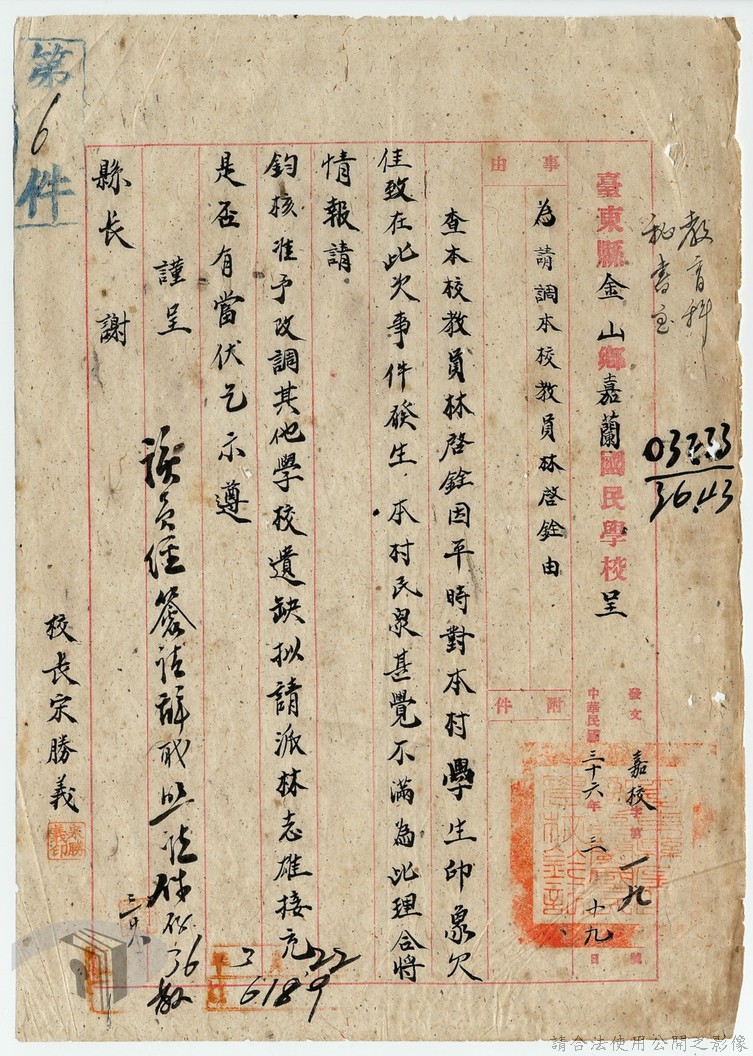 第
6
件
教育科
秘書室
03533
36.43
臺東縣金山鄉嘉蘭國民學校呈
發文 嘉校字第一九號
中華民國三十六年三月十九日
事由
為請調本校教員林啓銓由
附件
查本校教員林啓銓因平時對本村學生印象欠
佳致在此次事件發生本村民眾甚覺不滿為此理合將
情報請
鈞核准予改調其他學校遺缺拟請派林志雄接充
是否有當伏乞示遵
謹呈
縣長 謝
校長宗勝義
請合法使用公開之影像